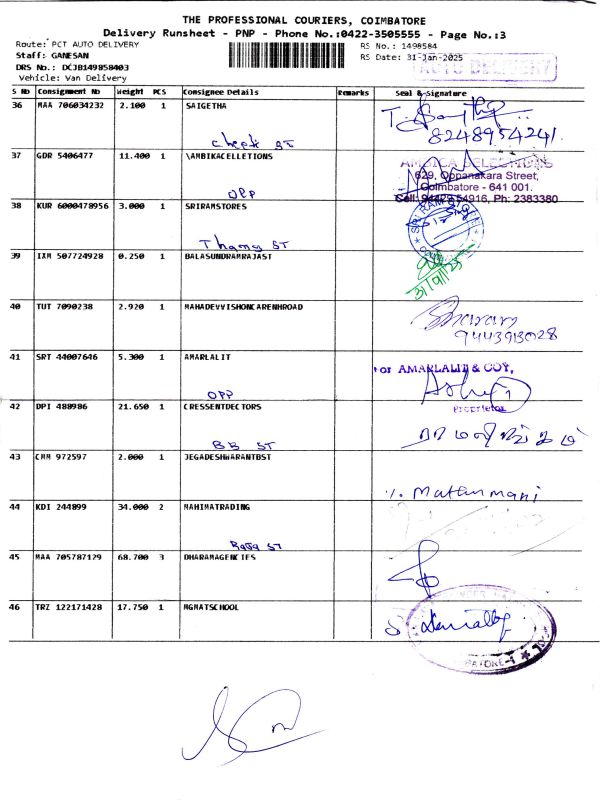 THE PROFESSIONAL COURIERS, COIMBATORE
Delivery Runsheet - PNP - Phone No.:0422-3505555 - Page No.:3
Route: PCT AUTO DELIVERY
RS No.: 1498584
Staff: GANESAN
RS Date: 31-Jan-2025
DRS No.: DCJB149858403
AUTO DELIVERY
Vehicle: Van Delivery
S No Consignment No Weight PCS Consignee Details Remarks Seal & Signature
36 MAA 706034232 2.100 1 SAIGETHA
8248954241.
ST
37 GDR 5406477 11.400 1 \AMBIKACELLETIONS
AMBICA SELECTIONS
629, Oppanakara Street,
Coimbatore - 641 001.
Cell: 94422 54916, Ph: 2383380
OPP
38 KUR 6000478956 3.000 1 SRIRAMSTORES
ST
39 IXM 507724928 0.250 1 BALASUNDRAMRAJAST
40 TUT 7090238 2.920 1 MAHADEVVISHONCARENHROAD
9443913028
41 SRT 44007646 5.300 1 AMARLALIT
For AMARLALIT & COY,
Proprietor
OPP
42 DPI 480986 21.650 1 CRESSENTDECTORS
BB ST
43 CMM 972597 2.000 1 JEGADESHWARANTBST
44 KDI 244899 34.000 2 MAHIMATRADING
Raja ST
45 MAA 705787129 68.700 3 DHARAMAGENCIES
46 TRZ 122171428 17.750 1 MGMATSCHOOL